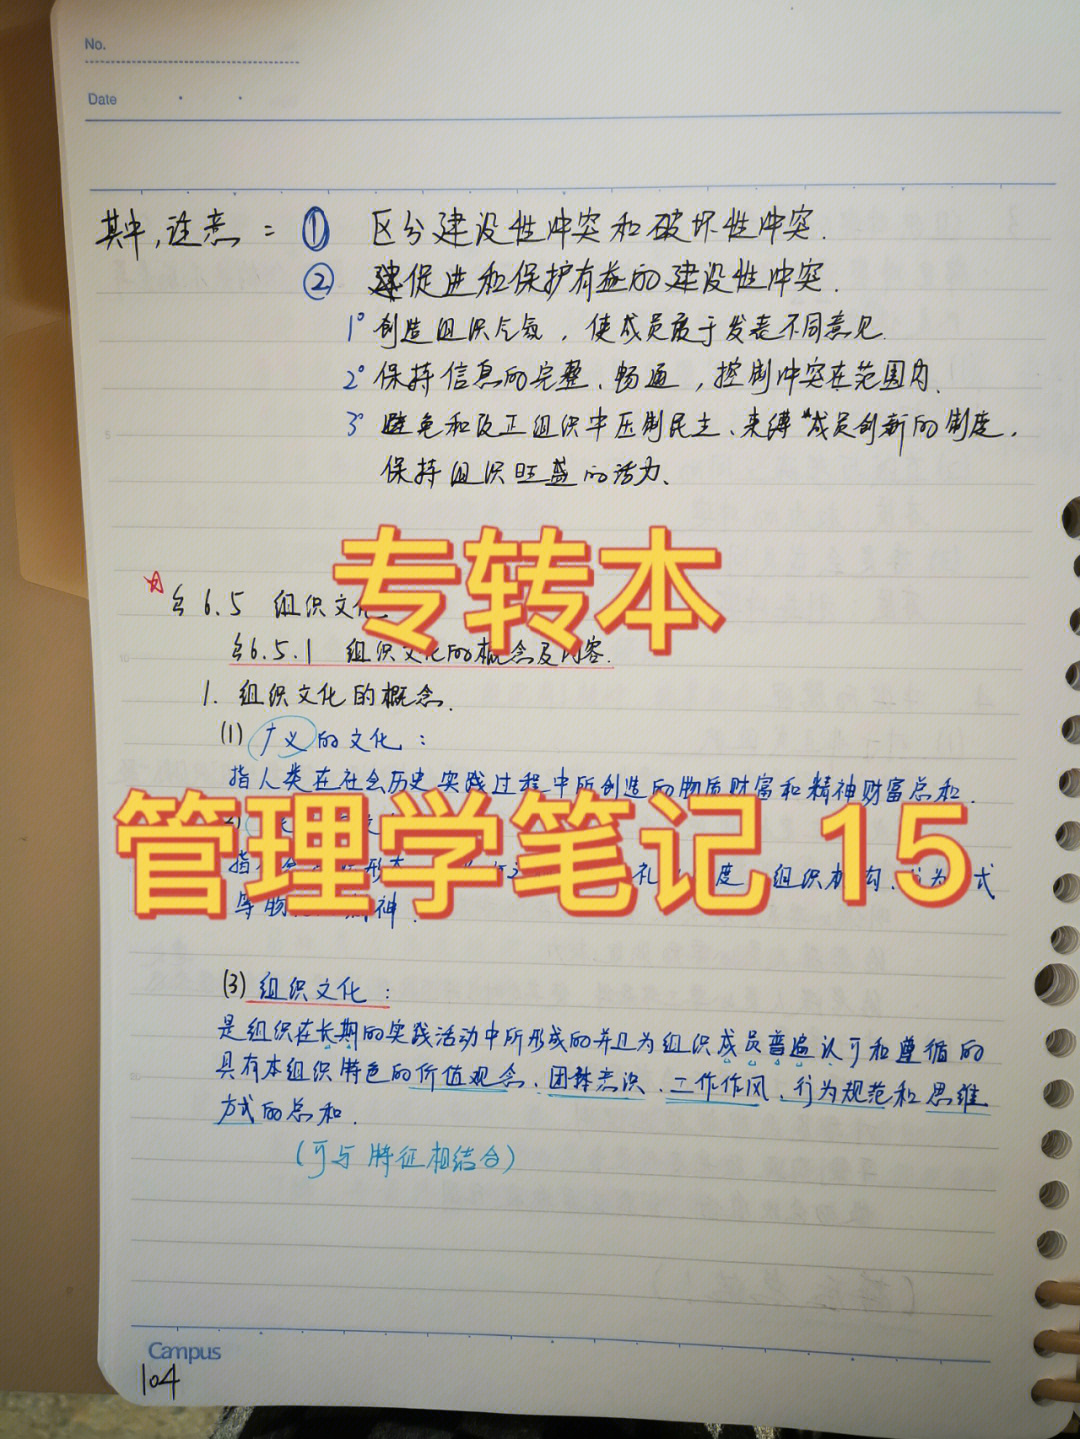 No.
Date
其中,注意: ① 区分建设性冲突和破坏性冲突.
② 促进和保护有益的建设性冲突.
1° 创造组织气氛, 使成员敢于发表不同意见.
2° 保持信息的完整、畅通, 控制冲突在范围内.
3° 避免和改正组织中压制民主、束缚成员创新的制度,
保持组织旺盛的活力、
专转本
§6.5 组织文化
§6.5.1 组织文化的概念及内容.
1. 组织文化的概念.
(1) 广义的文化:
指人类在社会历史实践过程中所创造的物质财富和精神财富总和.
管理学笔记 15
指 形态 礼 度 组织机构、行为 式
等物 精神.
(3) 组织文化:
是组织在长期的实践活动中所形成的并且为组织成员普遍认可和遵循的
具有本组织特色的价值观念、团体意识、工作作风、行为规范和思维
方式的总和.
(可与特征相结合)
Campus
104